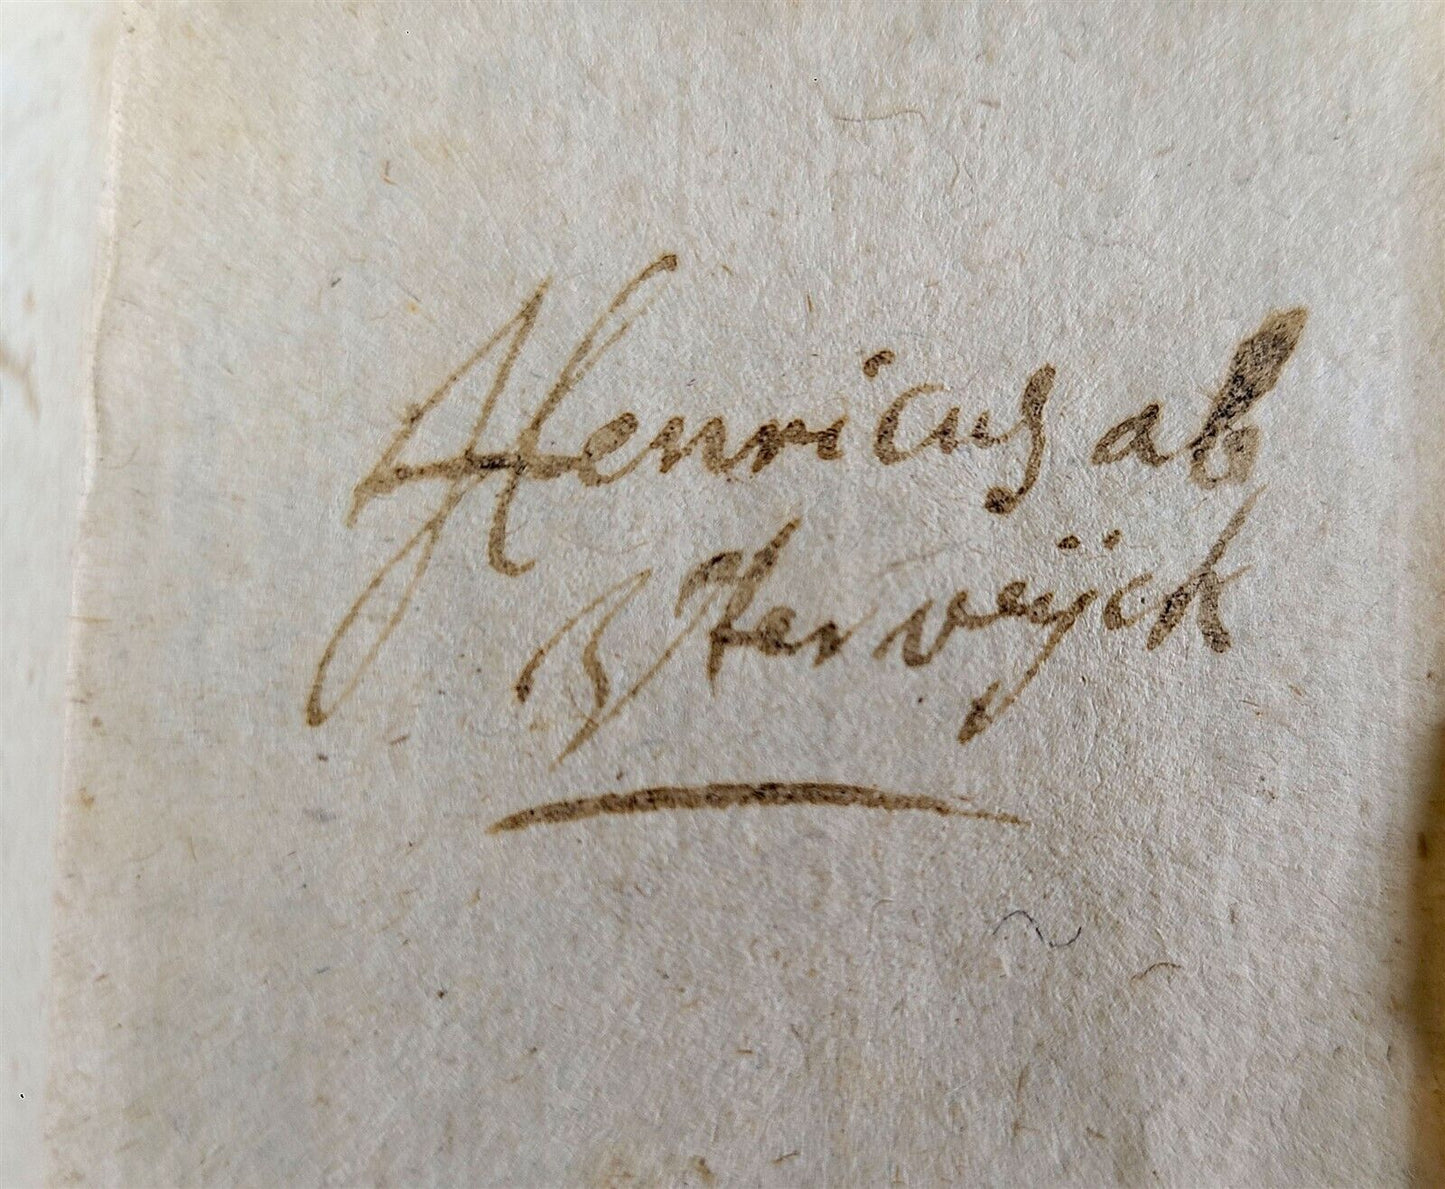 Henricus ab
Herweÿck